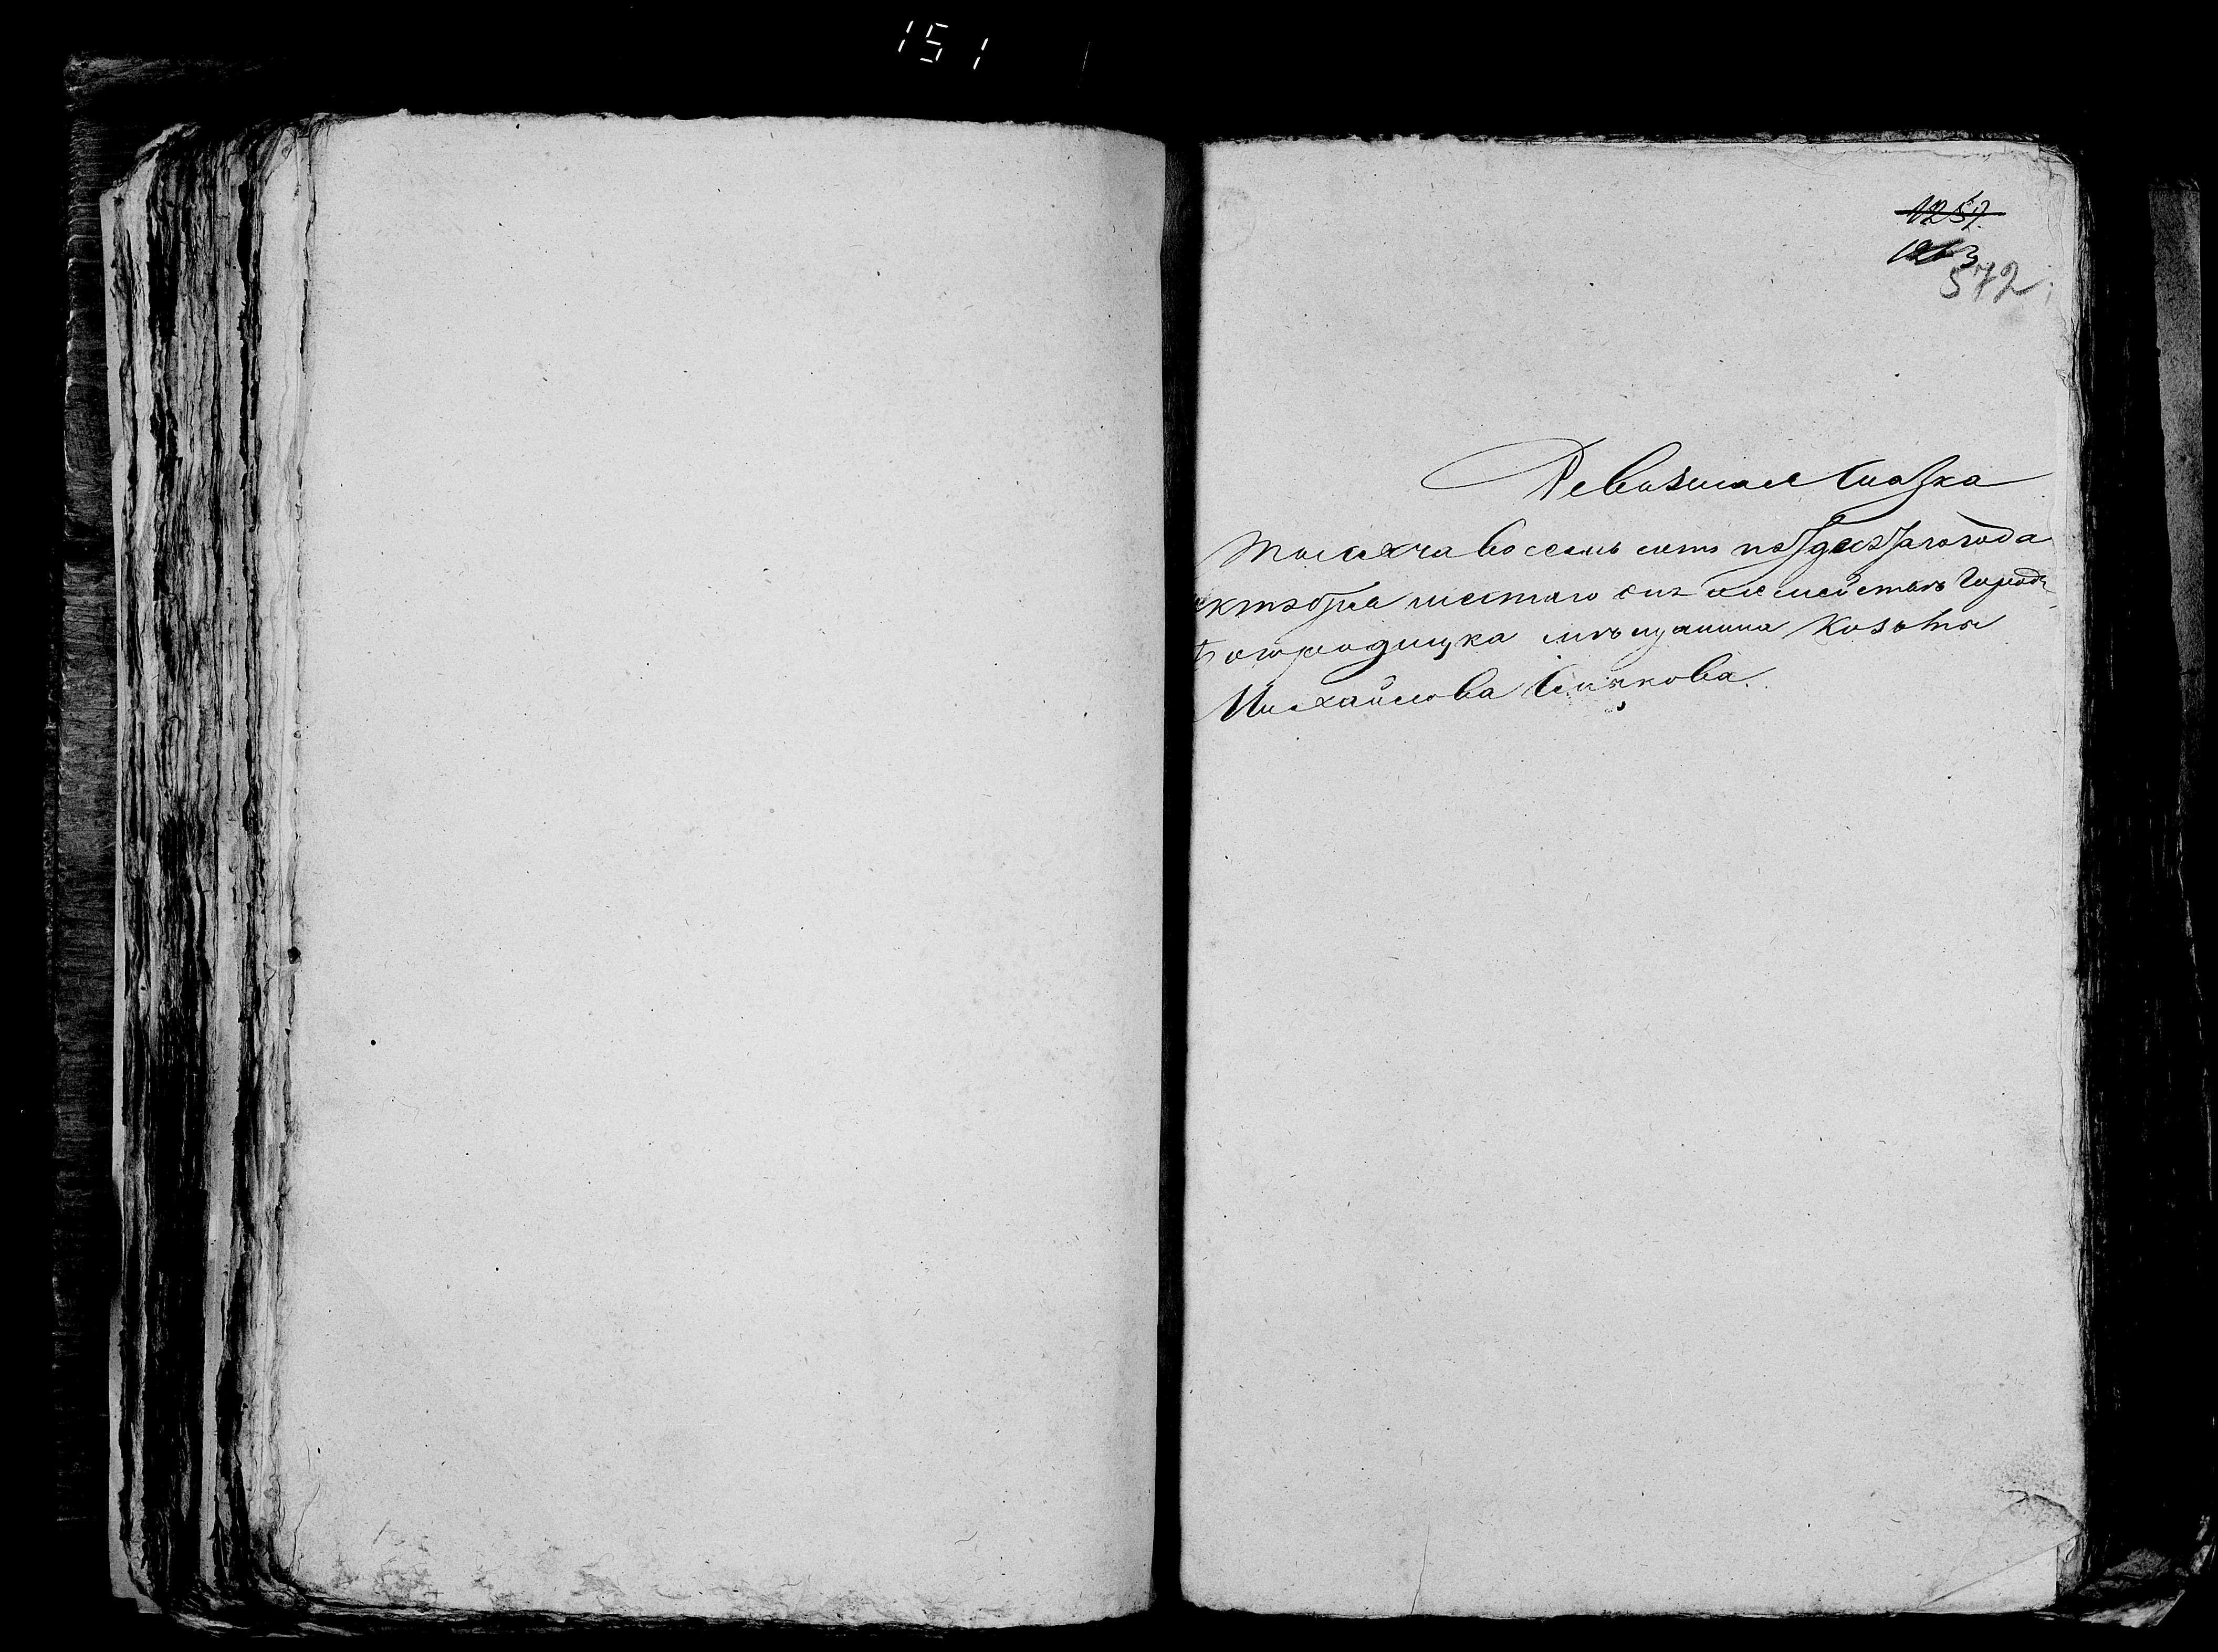 151
1257.
1263
572
Ревизская Сказка
Тысяча восемь сотъ пятдесятагогода
октября шестаго дня семействъ Города
Богородицка мѣщанина Козьмы
Михайлова